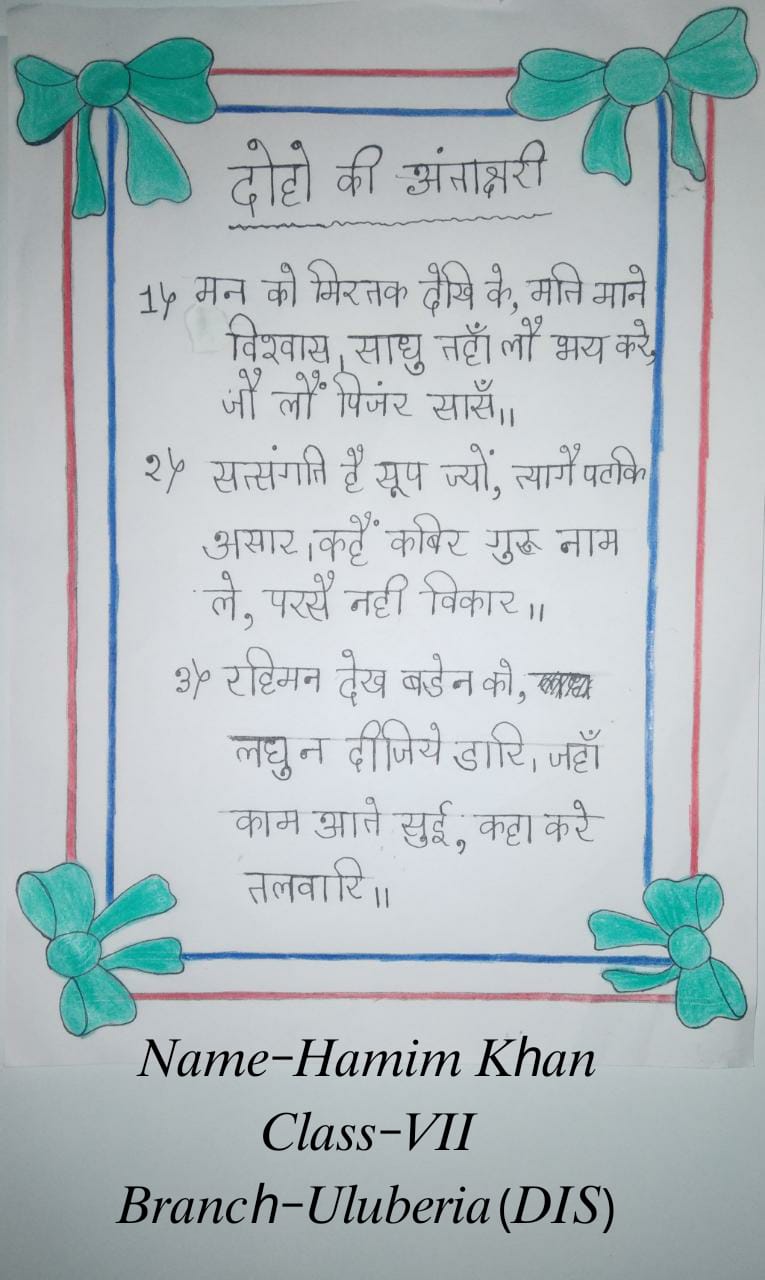 दोहो की अंताक्षरी
1) मन को मिरतक देखि के, मति माने
विश्वास। साधु तहाँ लौ भय करे,
जौ लौं पिजंर सासँ॥
२) सत्संगति है सूप ज्यों, त्यागै पटकि
असार। कहैं कबिर गुरू नाम
ले, परसै नही विकार॥
3) रहिमन देख बडेन को,
लघु न दीजिये डारि। जहाँ
काम आते सुई, कहा करे
तलवारि॥
Name-Hamim Khan
Class-VII
Branch-Uluberia (DIS)